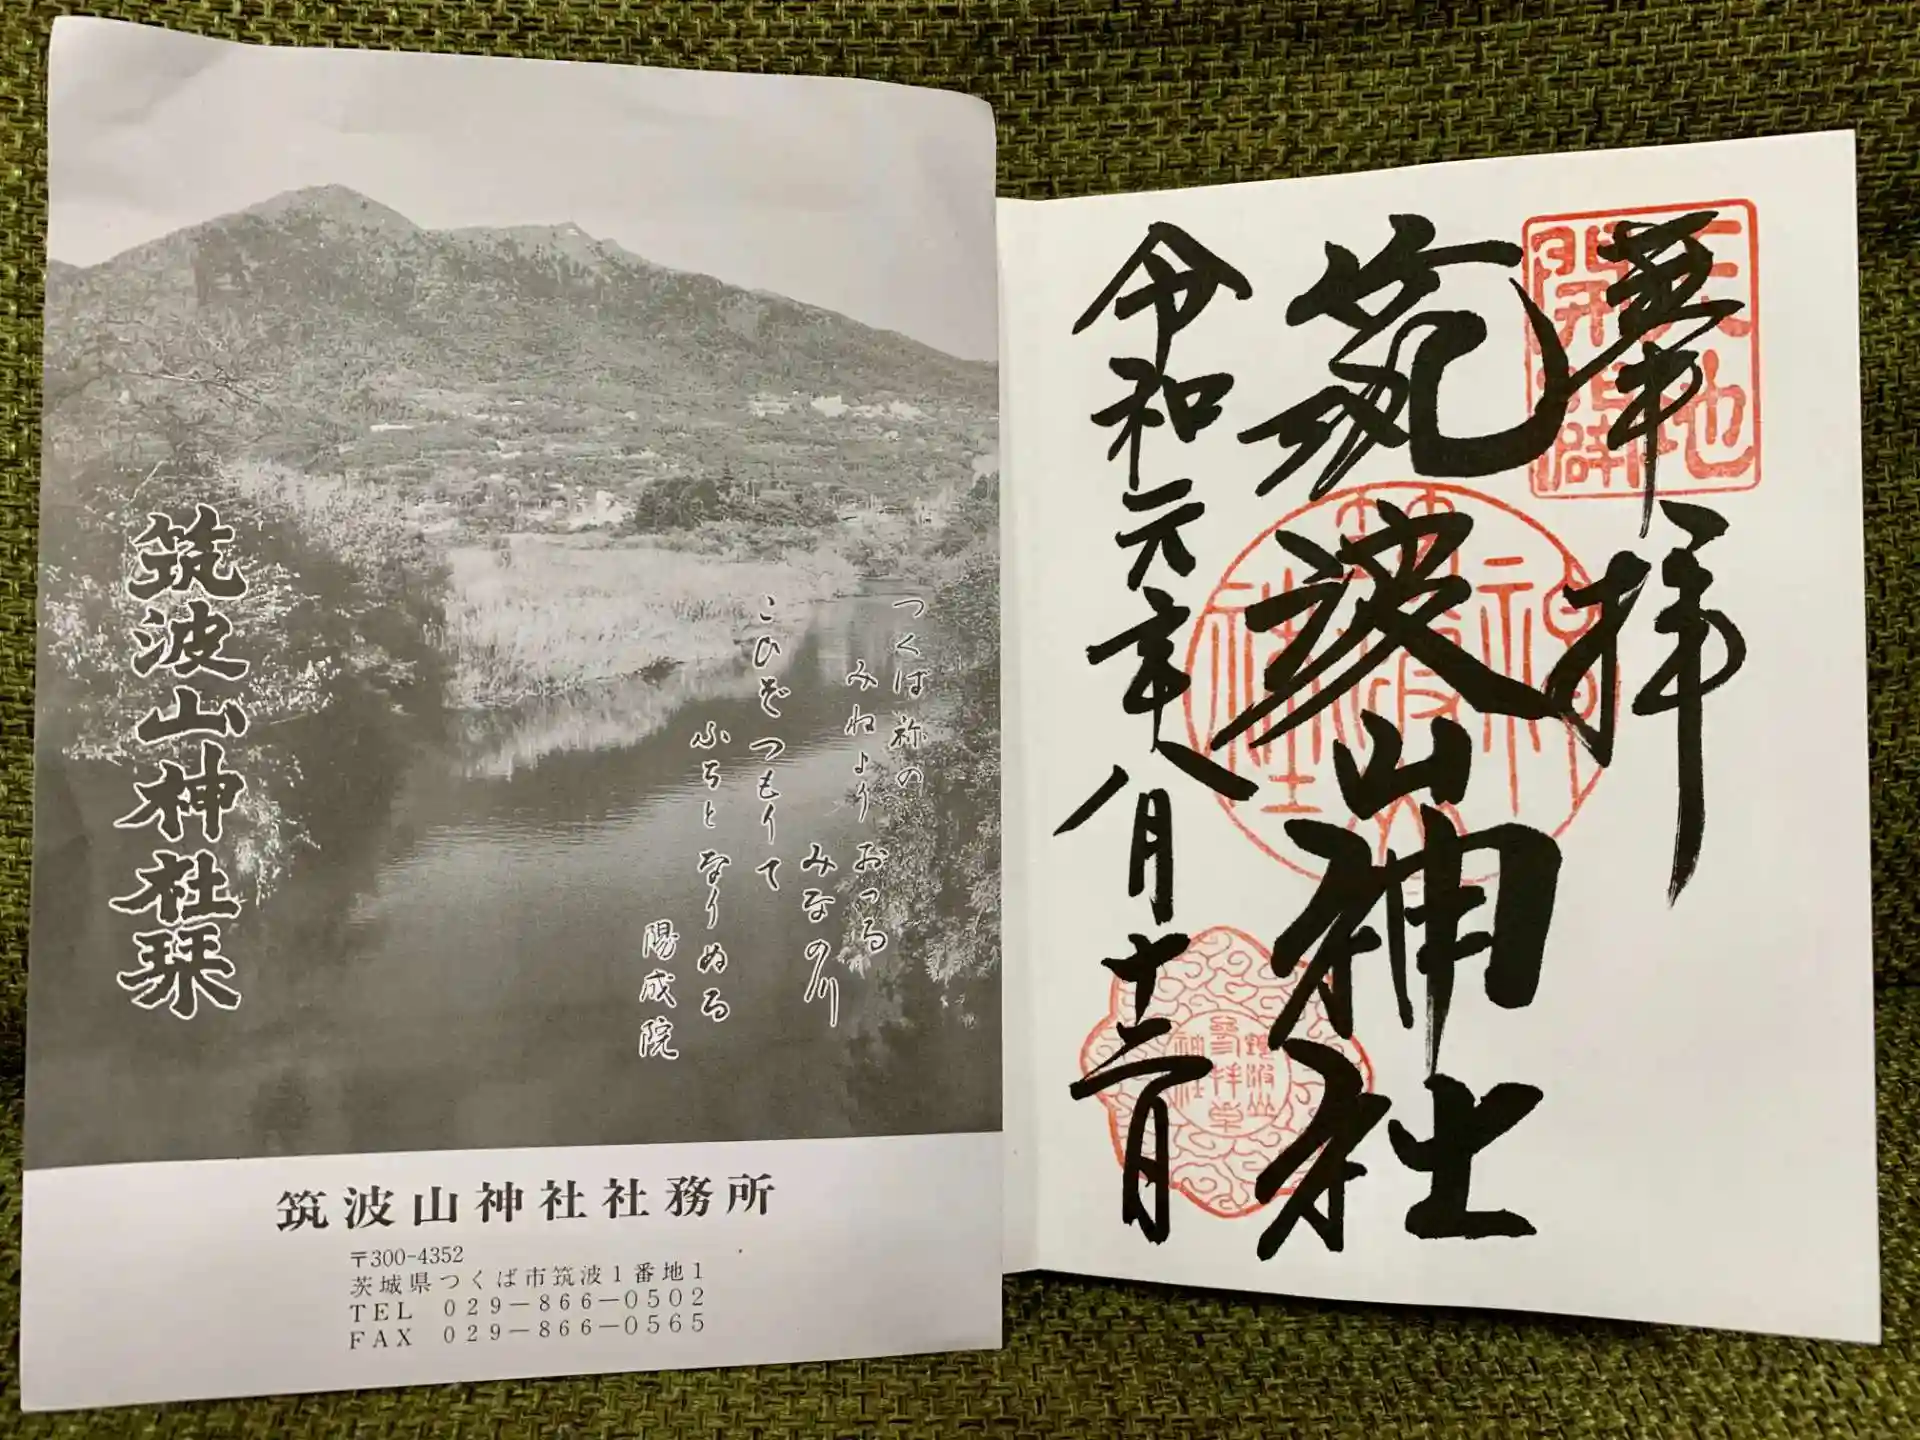 筑波山神社栞
つくは祢の
みねよりおつる
みなの川
こひぞつもりて
ふちとなりぬる
陽成院
筑波山神社社務所
〒300-4352
茨城県つくば市筑波1番地1
TEL 029-866-0502
FAX 029-866-0565
奉拝
天地
開闢
筑波山神社
筑波山
神社
令和元年八月十二日
筑波山
参拝章
神社